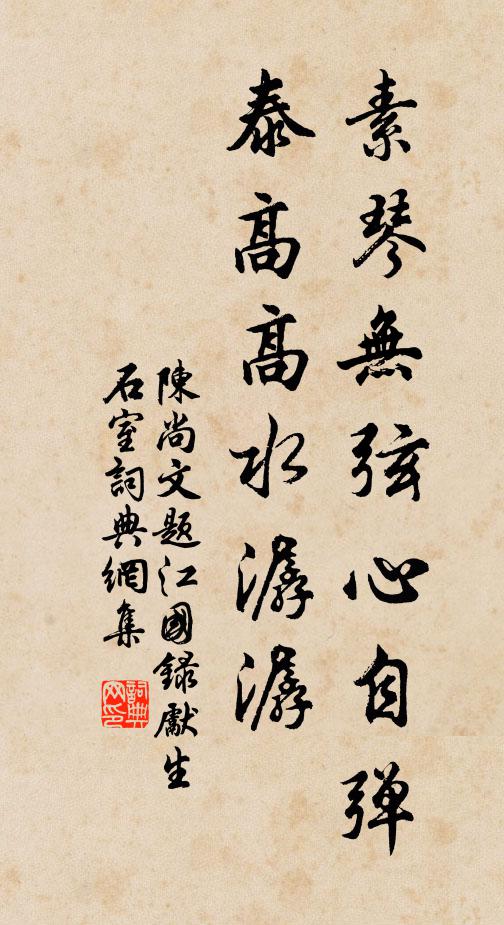 素琴無弦心自弹
泰高高水潺潺
陳尚文题江國録獻生
石室詞典網集
詞典网印